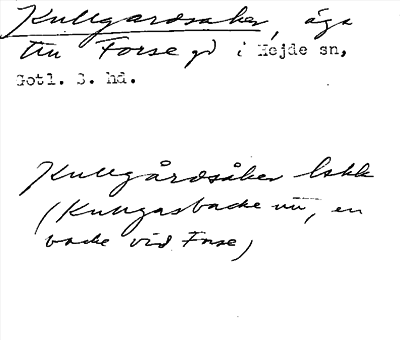 Kullgardsåker, äga
till Forse gd i Hejde sn,
Gotl. S. hd.
Kullgårdsåker
(Kullgasbacke nu, en
backe vid Forse)